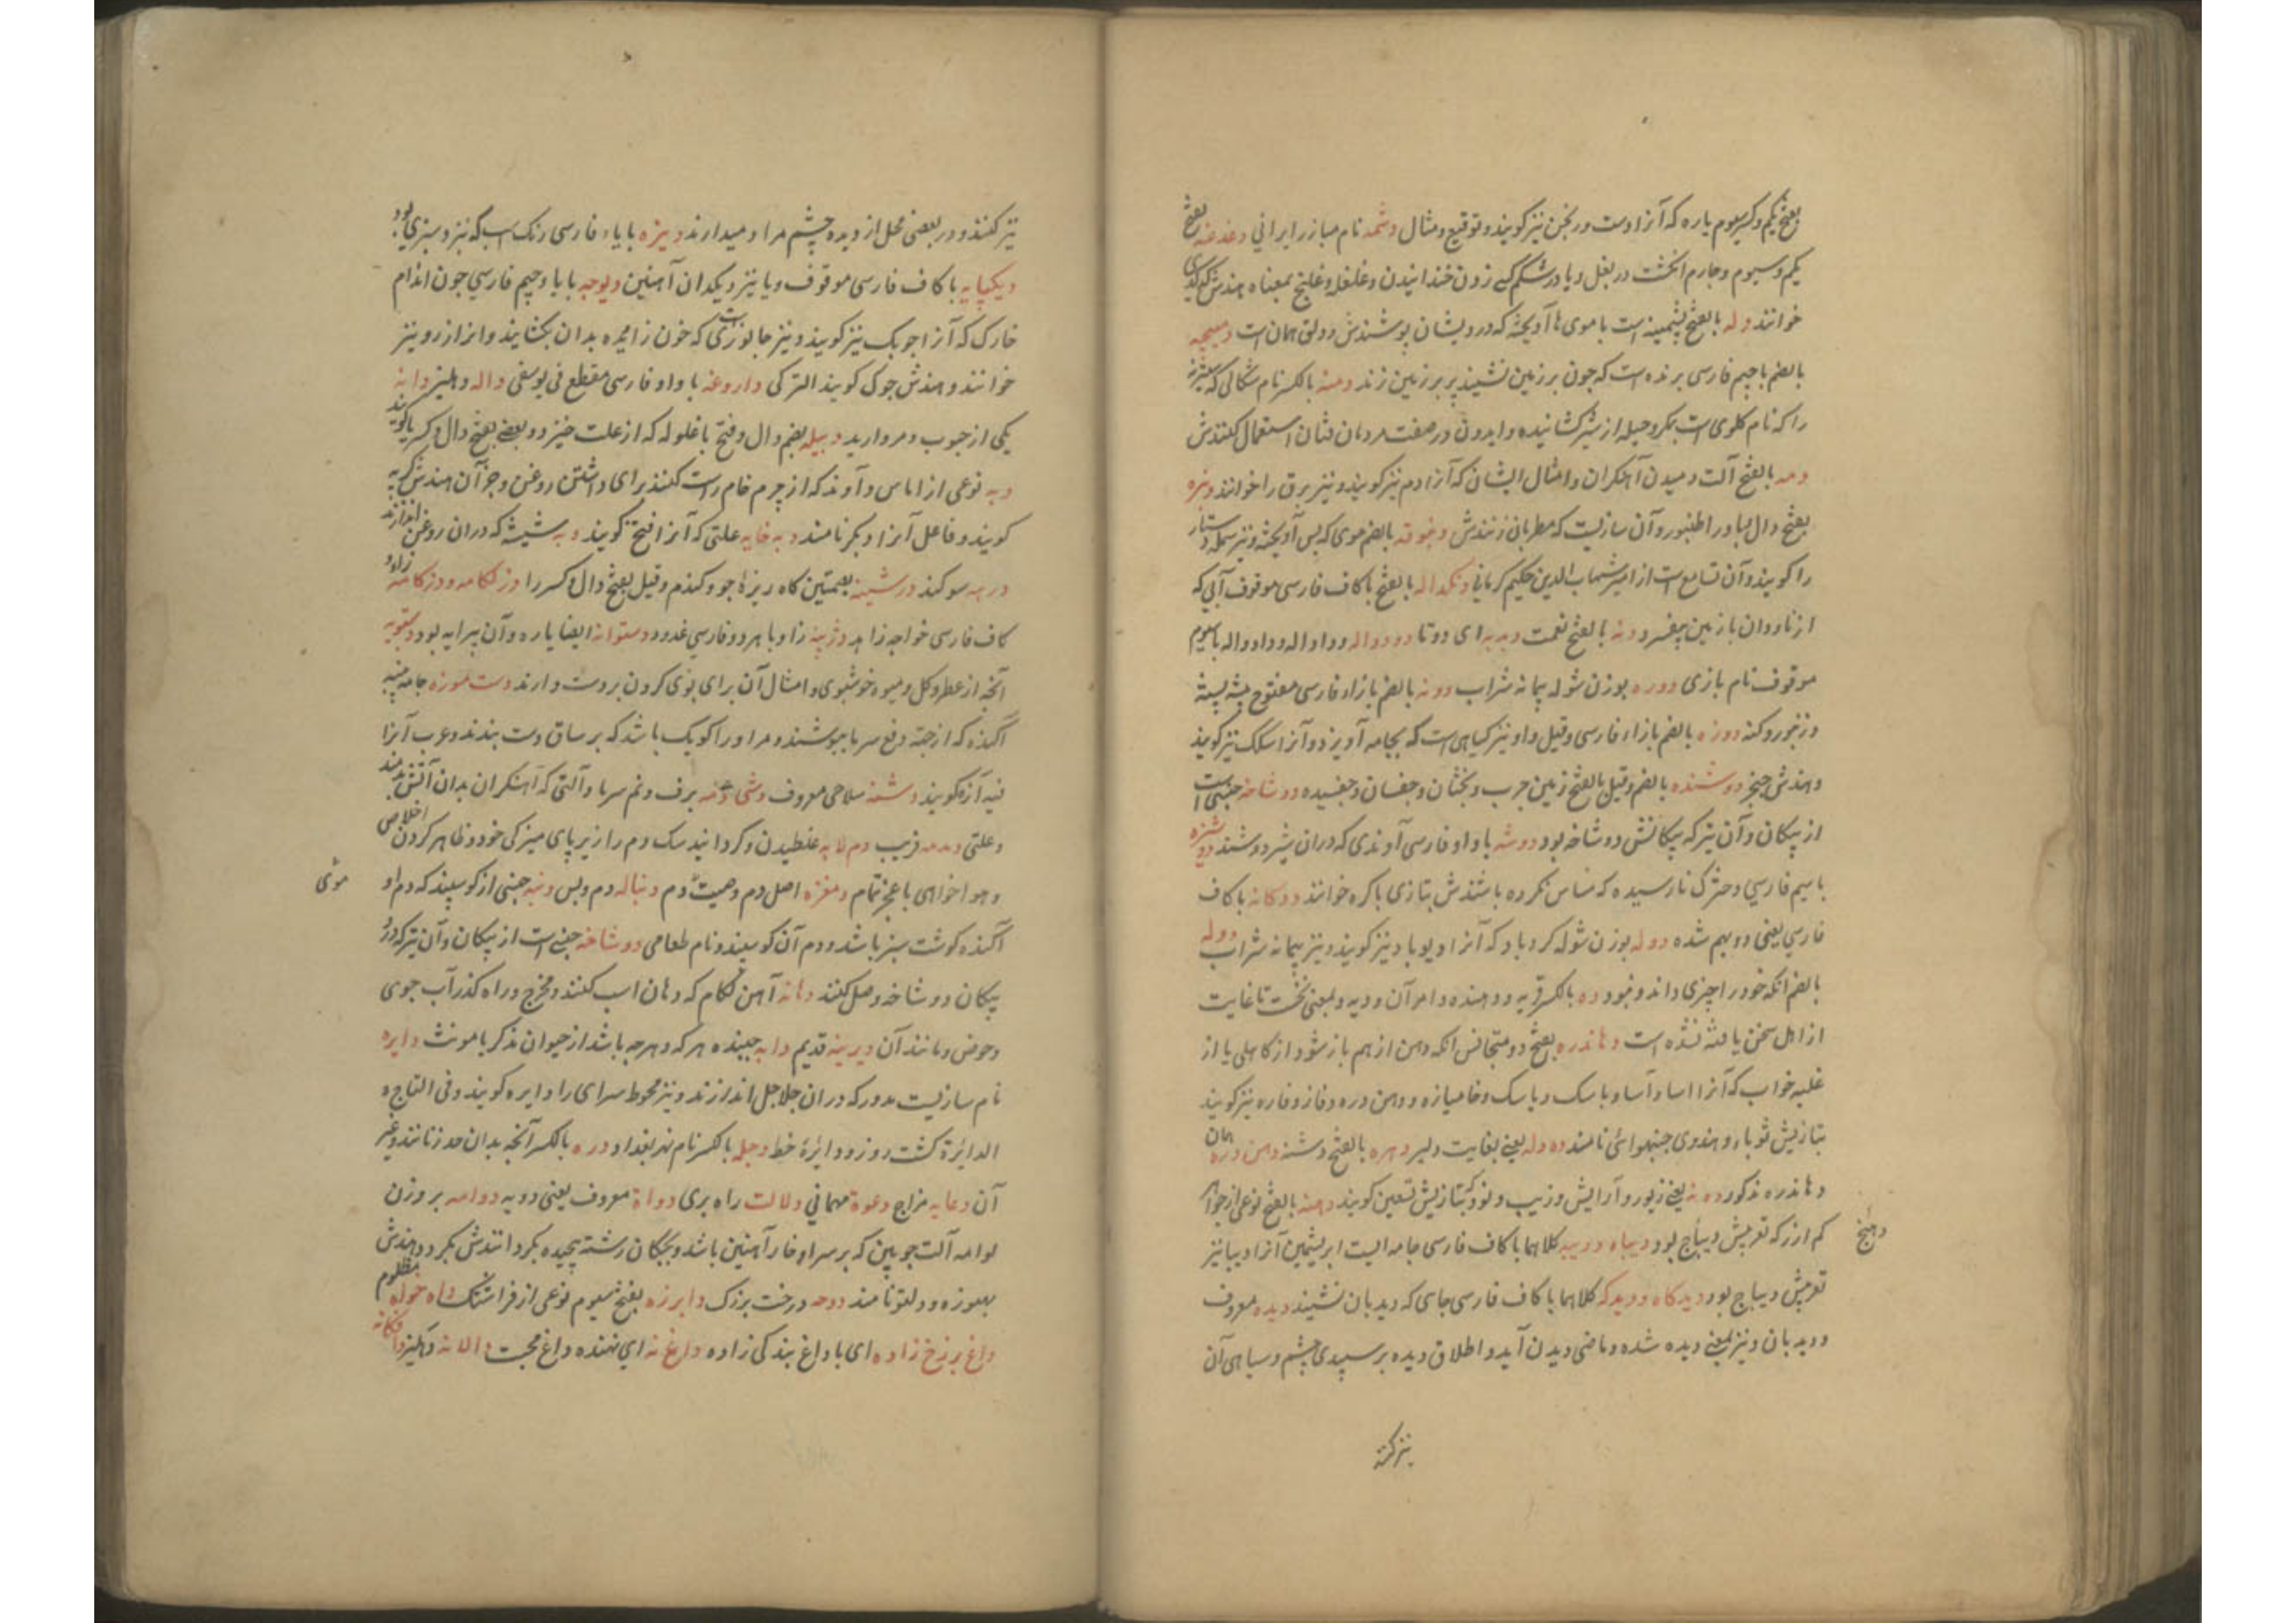 بفتح یکم و کسر سوم یاره که آنرا دست ورنجن نیز کویند و توقیع و مثال دشمه نام مبارز ایرانی دغدغه بفتح
یکم و سیوم و چارم انکشت در بغل و یا در شکم کسی زدن خندانیدن و غلغلیج و غلیج بمعناه هندش کدکدی
خوانند دله بالفتح پشمینه است با موی ها آویخته که درویشان پوشندش و دلق همان است
بالضم با جیم فارسی پرنده است که چون بر زمین نشیند پر بر زمین زند دمنه بالکسر نام شکالی که شنزبه
را که نام کاوی است بمکر و حیله از شیر کشانیده و ایدون در صفت مردمان فتان استعمال کنندش
دمه بالفتح آلت دمیدن آهنکران و امثال ایشان که آنرا دم نیز کویند و نیز برق را خوانند
بفتح دال و با و را طنبور و آن سازیست که مطربانی زنندش بالضم موی که پس آویخته و نیز سمله دستار
را کویند و آن تسامع است از امیر شهاب الدین حکیم کرمانی بالفتح با کاف فارسی موقوف آبی که
از ناودان بازمین بیفسرد دنه بالفتح نعمت ای دوتا دودواله و داوداله و داودواله با سیوم
موقوف نام بازی دوره بوزن شوله پیمانه شراب دوژنه بالضم با زاء فارسی مفتوح
و زنبور و کنه دوژه بالضم با زاء فارسی و قیل واو نیز کیاهی است که بجامه آویزد و آنرا سکک نیز کویند
و هندش دوشنده بالضم و قیل بالفتح زمین چرب و چفسان و چفسیده دوشاخه جنسی است
از پیکان و آن تیر که پیکانش دوشاخه بود دوشه با واو فارسی آوندی که دران شیر دوشند دوشیزه
با سیم فارسی دخترک نارسیده که مساس نکرده باشندش بتازی باکره خوانند دوکانه با کاف
فارسی یعنی دو بهم شده دوله بوزن شوله کردباد که آنرا دیوباد نیز کویند و نیز پیمانه شراب دوله
بالضم انکه خود را چیزی داند و نبود ده بالکسر قریه و دهنده و امر آن و دیه و بمعنی نخست تا غایت
از اهل سخن یافته نشده است دهاندره بفتح دو متجانس انکه دهن از هم باز شود از کاهلی یا از
غلبه خواب که آنرا اسا و آسا و باسک و پاسک و خامیازه و دهن دره و فاژ و فاژه نیز کویند
بتازیش ثوباء و هندوی نامند ده دله یعنی بغایت دلیر دهره بالفتح دشنه دهن دره همان
دهاندره مذکور ده نه یعنی زیور و آرایش و زیب و بود دهنه بالفتح نوعی از جواهر
کم ارز که تعریبش بود دیباه و دیبه کلاهما با کاف فارسی جامه ایست ابریشمین آنرا دیبا نیز
دهنج
تعریبش دیباج بود دیدکاه و دیدکه کلاهما با کاف فارسی جای که دیدبان نشیند دیده معروف
و دیدبان و نیز بمعنی دیده شده و ماضی دیدن آید و اطلاق دیده بر سپیدی چشم و سیاهی آن
نیز کنند
نیز کنند و در بعضی محل از دیده چشم مراد میدارند دیزه با یاء فارسی رنک اسپ که نیز و سبزی بود
دیکپایه با کاف فارسی موقوف و یا نیز دیکدان آهنین دیوچه با یا و جیم فارسی چون اندام
خارک که آنرا نیز کویند و نیز جانوریست که خون زایده بدان بکشایند و انرا زرو نیز
خوانند و هندش جوک کویند الترکی داروغه با واو فارسی مقطع فی یوسفی داله دهلیز دانه
یکی از حبوب و مروارید دبیله بضم دال و فتح با غلوله که از علت خیزد و بعضی بفتح دال و کسر با کویند
دبه نوعی از اباس و آوند که از چرم خام راست کنند برای داشتن روغن و جز آن هندش کوپه
کویند و فاعل آنرا دبکر نامند دبه خایه علتی که آنرا فتح کویند دبه شیشه که دران روغن اندازند
درمه سوکند درشینه بضمتین کاه ریزهٔ جو و کندم و قیل بفتح دال و کسر را دزکامه و دزکامه زاء و
کاف فارسی خواجه زاهد دژپیه زا و با هر دو فارسی غدود دستوانه ایضا یاره و آن پیرایه بود دستبویه
آنچه از عطر و کل و میوه خوشبوی و امثال آن برای بوی کردن بر دست دارند دست موزه جامه پنبه
آکنده که از جهة دفع سرما بپوشند و مر او را کویک باشد که بر ساق دست بندند و عرب آنرا
کویند دشنه سلاحی معروف برف و نم سرما و آلتی که آهنکران بدان آتش دمند
و علتی دمدمه فریب دم لابه غلطیدن و کردانیدن سک دم را زیر پای میزکی خود و ظاهر کردن اخلاص
و هوا خواهی با عجز تمام دمغزه اصل دم دنباله دم و پس دنبه جنسی از کوسپند که دم او
موئی
آکنده کوشت سبز باشد و دم آن کوسپند و نام طعامی دوشاخه جنسی است از پیکان و آن تیر که در
پیکان دوشاخه وصل کنند دهانه آهن لکام که در دهان اسپ کنند و مخرج و راه کذر آب جوی
و حوض و مانند آن دیرینه قدیم دابه جنبنده هر که و هرچه باشد از حیوان مذکر یا مونث دایره
نام سازیست مدور که دران جلاجل اندازند و نیز محوط سرای را دایره کویند و فی التاج
الدایرة کشت روز و دایرهٔ خط دجله بالکسر نام نهر بغداد دره بالکسر آنچه بدان حد زنانند و غیر
آن دعابه مزاح دعوة مهمانی دلالت راه بری دواة معروف یعنی دویه دوامه بر وزن
لوامه آلت چوبین که بر سر او خار آهنین باشد و بچکان رشته پیچیده بکردانندش بکردد و هندش
نامند دوحه درخت بزرک دابرزه بفتح سیوم نوعی از فراشتک داه خوله مظلوم
داغ برنخ زاده ای با داغ بندکی زاده داغ نه ای نهنده داغ محبت دالانه دهلیز دانکانه